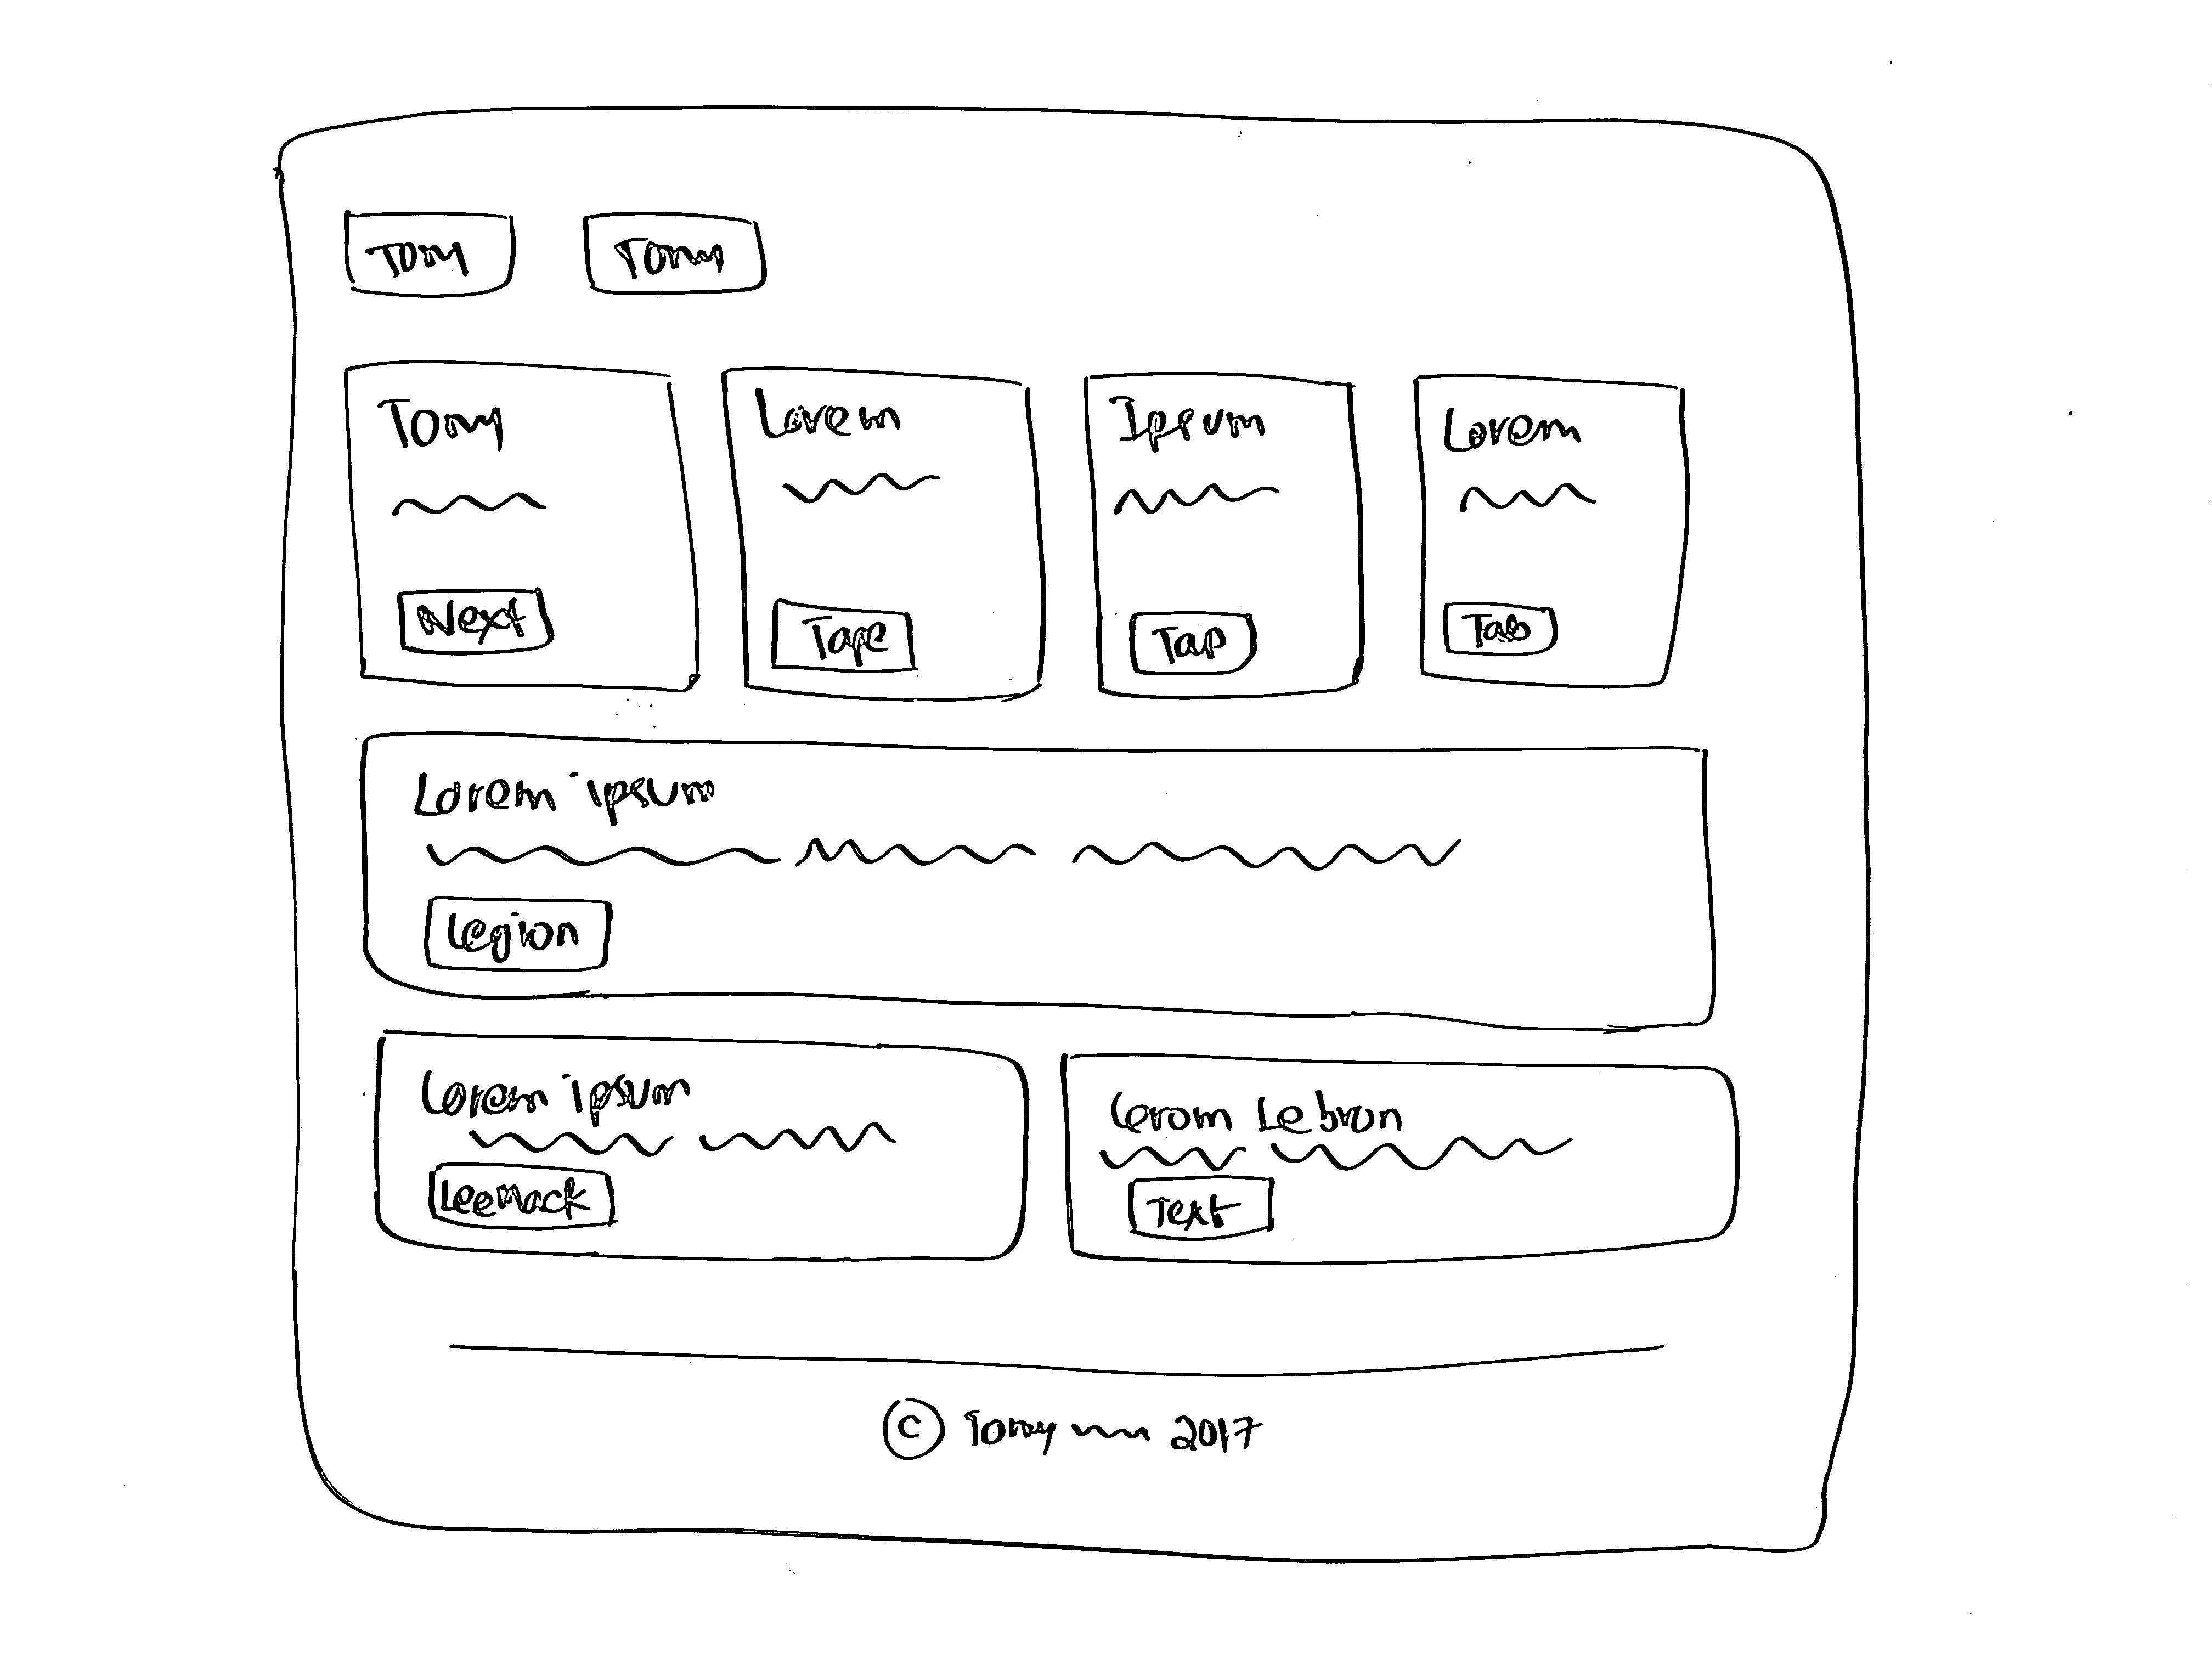 Tony Tony
Tony
Next
Lorem
Tape
Ipsum
Tap
Lorem
Tab
Lorem ipsum
Legion
Lorem ipsum
Leemack
Lerom Lebron
Text
© Tony 2017